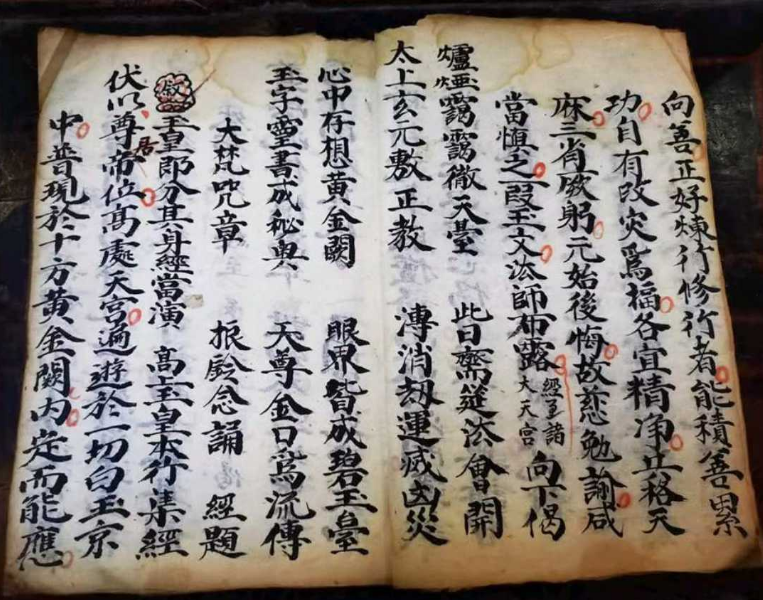 向善正好煉行修行者能積善累
功自有改灾爲福各宜精净立格天
庥三肖厥躬元始後悔故慈勉諭咸
當慎之一段玉文法師布露 經至諸大天宫 向下偈
爐煙靄靄徹天臺 此日齋筵法會開
太上玄元敷正教 溥消刼運滅凶災
心中存想黄金闕 眼界皆成碧玉臺
玉字靈書成秘奥 天尊金口爲流傳
大梵咒章 振鈴念誦 經題
玉皇即分其身經當演 高上玉皇本行集經
伏以尊居帝位高處天宫遍遊於一切白玉京
中普現於十方黄金闕内定而能應